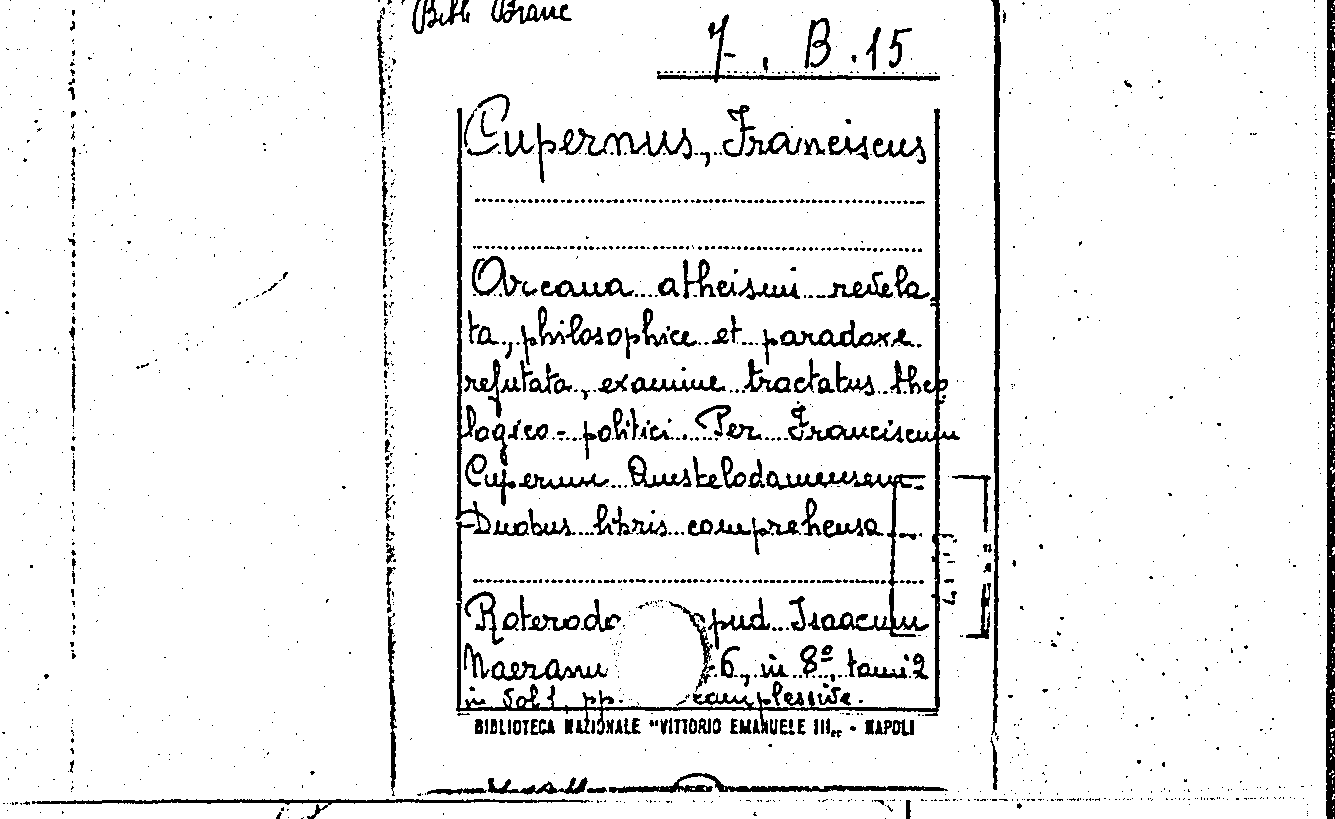 Bibl Branc
7. B. 15
Cupernus, Franciscus
Arcana atheismi revela
ta, philosophice et paradoxe
refutata, examine tractatus theo
logico-politici. Per Franciscum
Cupernum Amstelodamensem.
Duobus libris comprehensa
Roterodo pud Isaacum
Naeranu 6, in 8º, tomi 2
in vol 1, pp. complessive.
BIBLIOTECA NAZIONALE "VITTORIO EMANUELE III" - NAPOLI